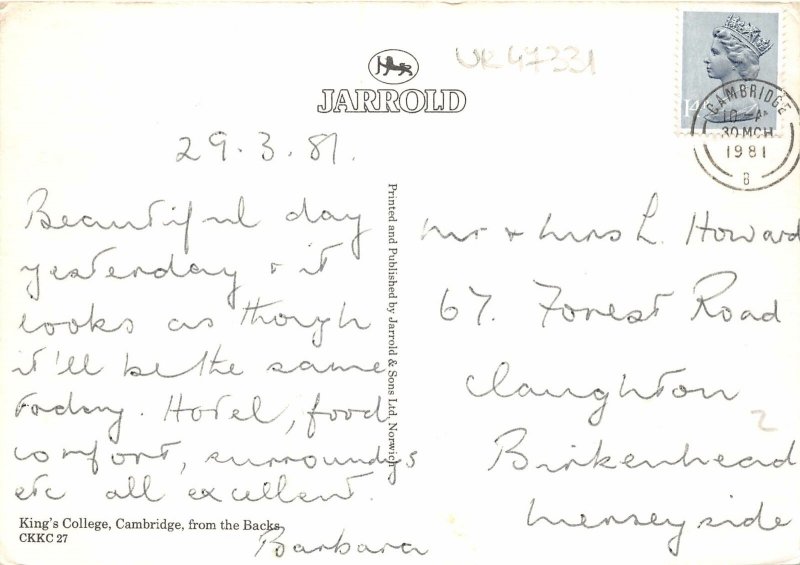 UR47331
JARROLD
14
CAMBRIDGE
10-A
30 MCH
1981
B
29.3.81.
Beautiful day
yesterday & it
looks as though
it'll be the same
today. Hotel, food
comfort, surroundgs
etc all excellent.
Barbara
Printed and Published by Jarrold & Sons Ltd, Norwich
Mr & Mrs L. Howard
67. Forest Road
Claughton
Birkenhead
Merseyside
2
King's College, Cambridge, from the Backs
CKKC 27